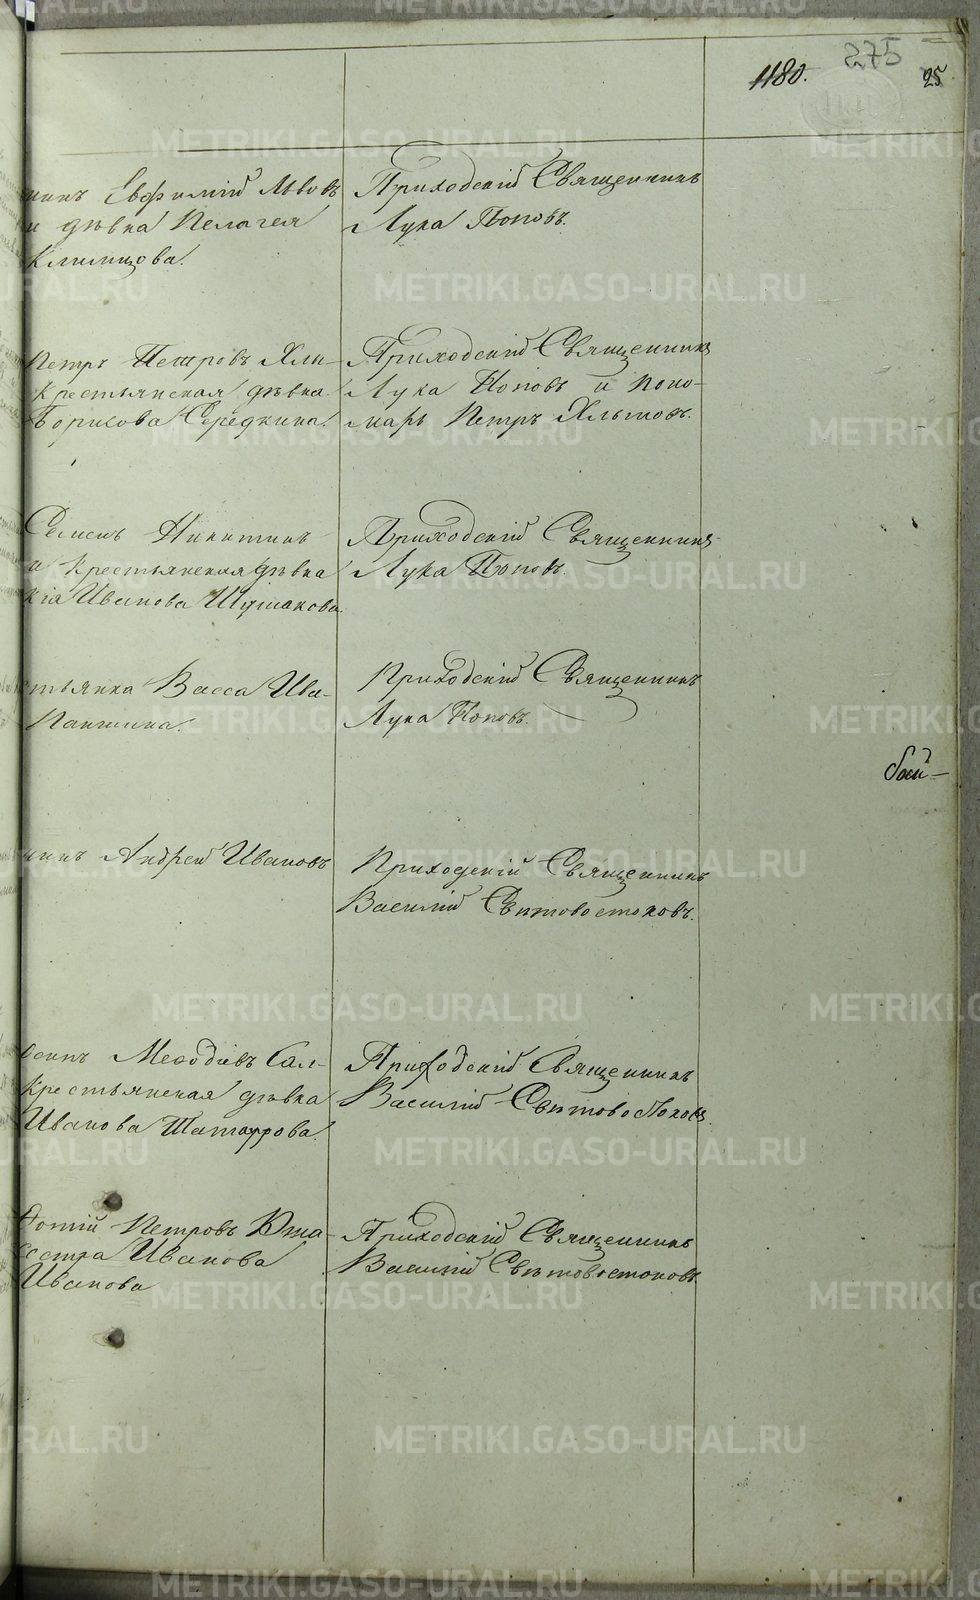 1180. 275 25
нинъ Евфимій Львовъ
и дѣвка Пелагея
Климцова.
Приходскій Священникъ
Лука Поповъ.
Петръ Петровъ Хлы-
Крестьянская дѣвка
Борисова Середкина.
Приходскій Священникъ
Лука Поповъ и поно-
марь Петръ Хлытовъ.
Семенъ Никитинъ
и Крестьянская дѣвка
кія Иванова Шушакова.
Приходскій Священникъ
Лука Поповъ.
стьянка Васса Ива-
Паншина.
Приходскій Священникъ
Лука Поповъ.
нинъ Андрей Ивановъ
Приходскій Священникъ
Василій Свѣтовостоковъ.
Меѳодіевъ Сал-
Крестьянская дѣвка
Иванова Шатаррова.
Приходскій Священникъ
Василій Свѣтовостоковъ.
Фотій Петровъ Южа-
сестра Иванова
Иванова
Приходскій Священникъ
Василій Свѣтовостоковъ
METRIKI.GASO-URAL.RU